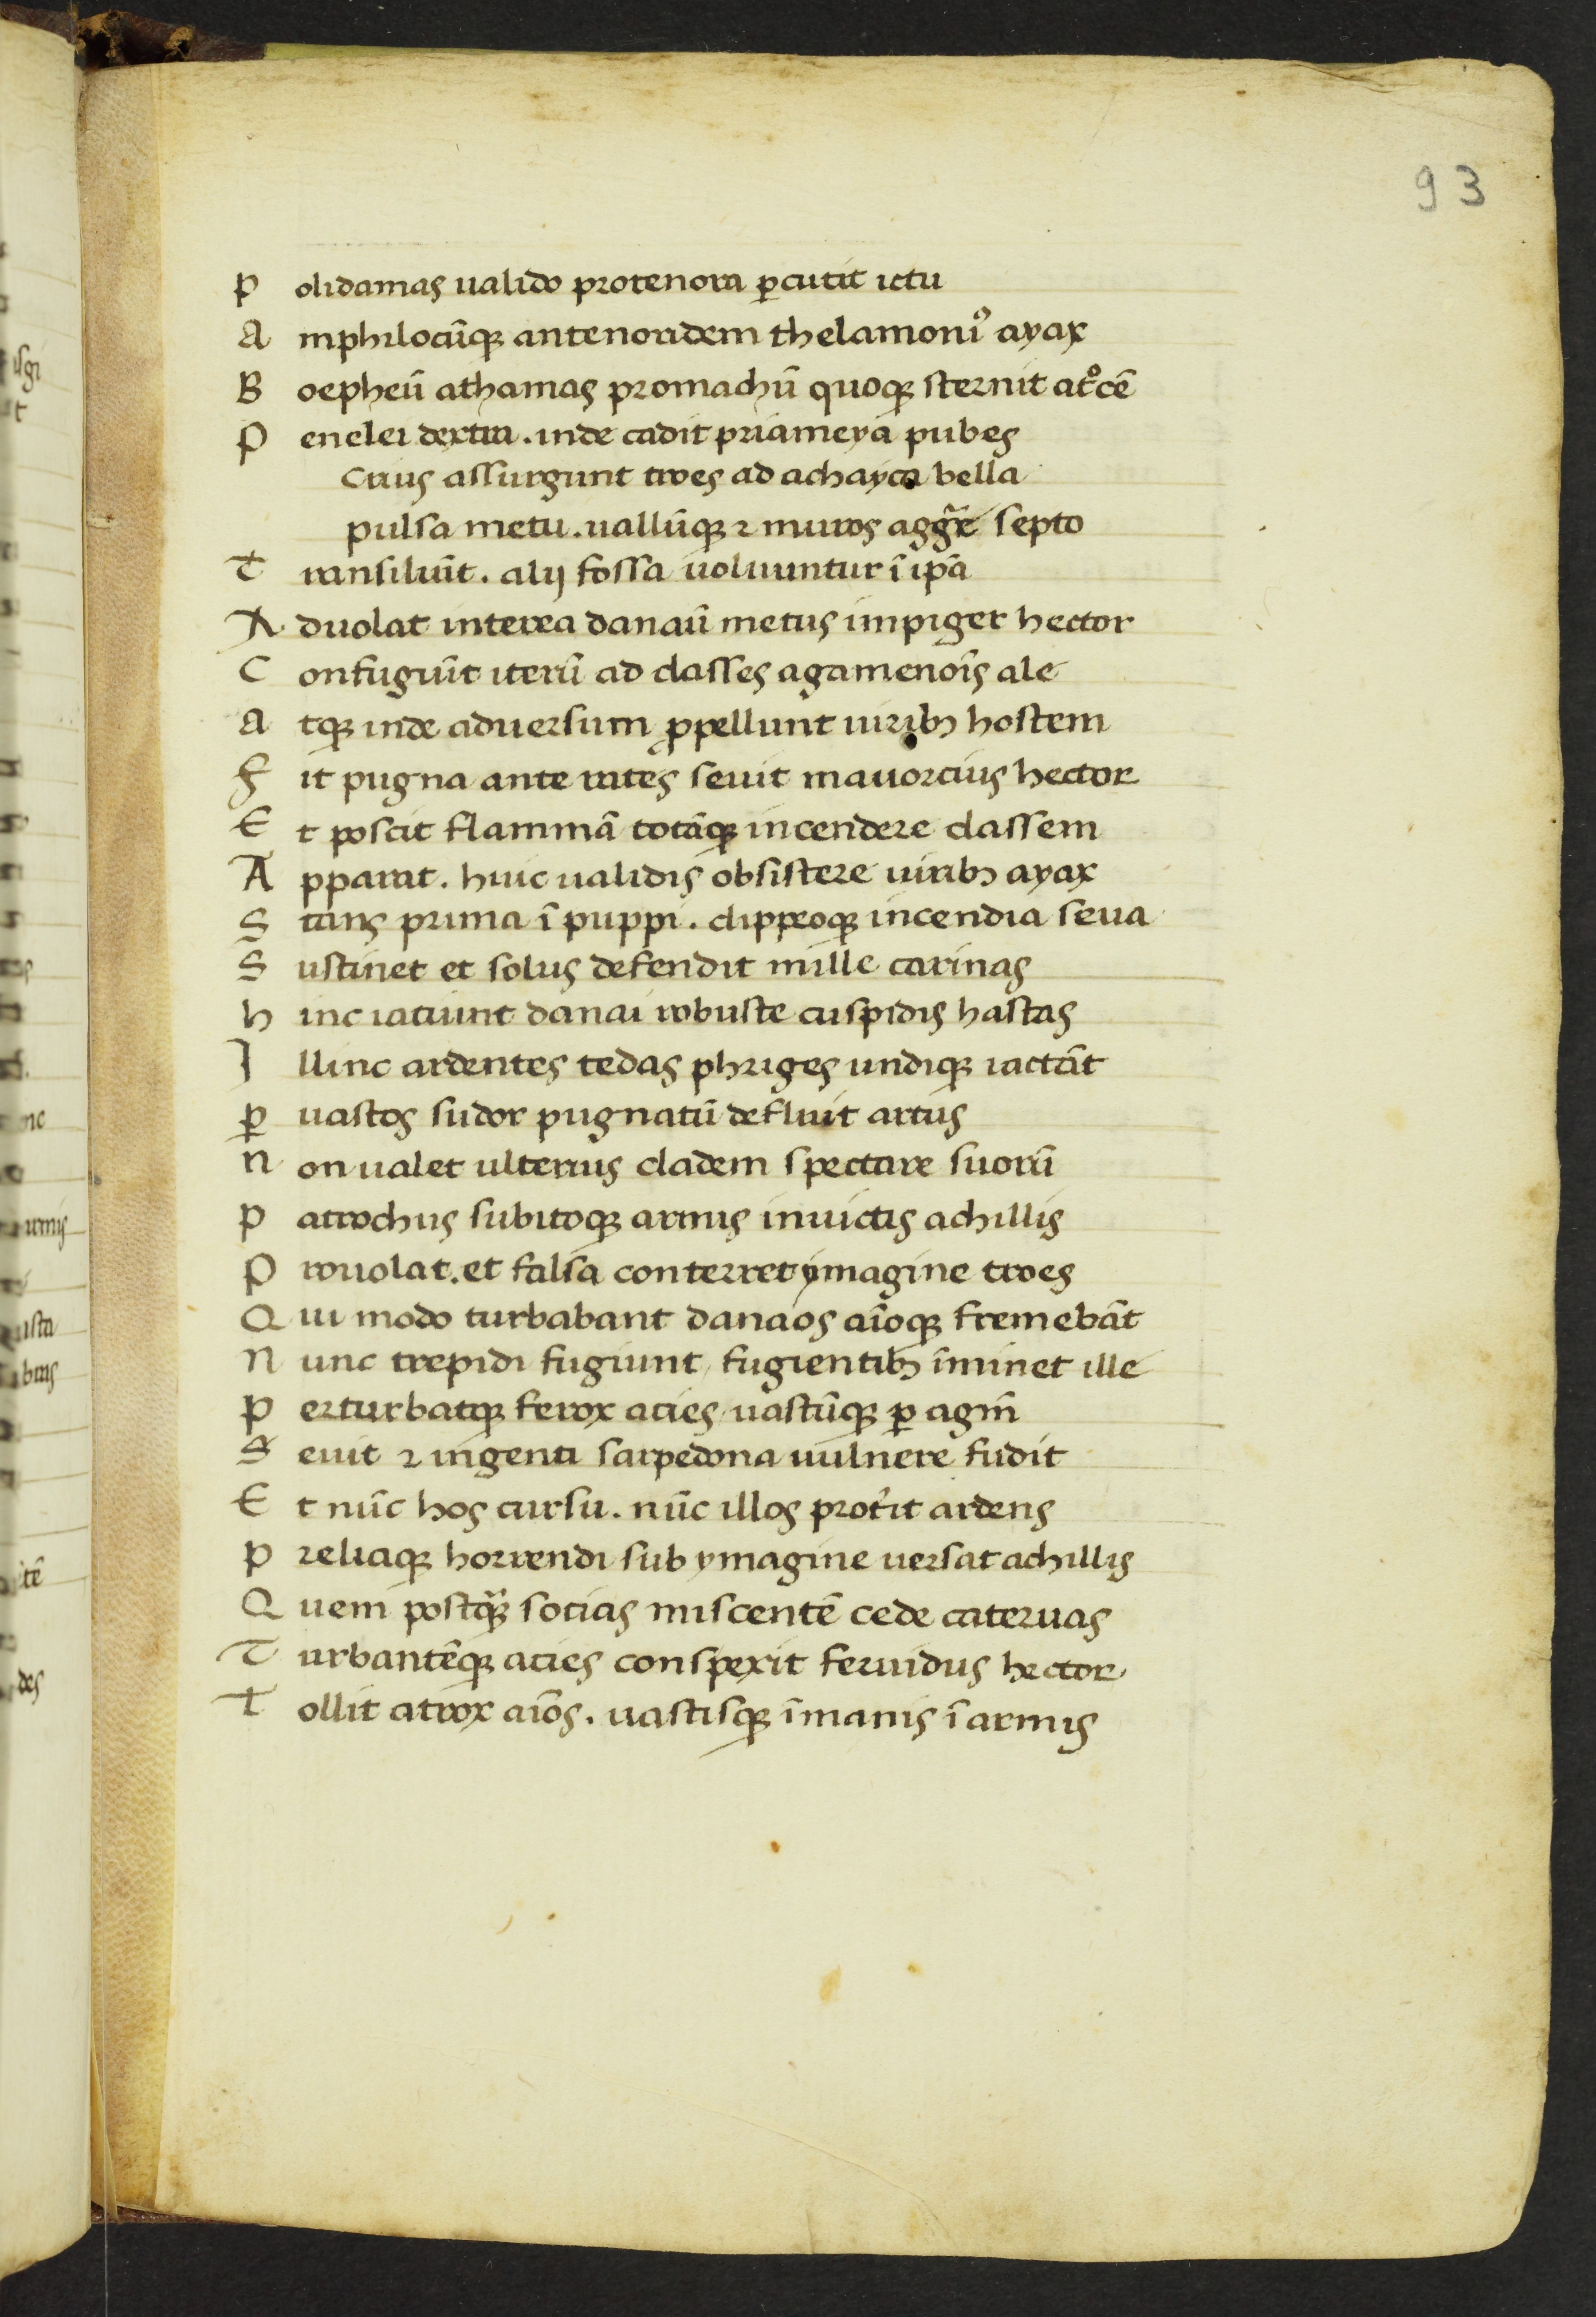 93
P olidamas ualido protenora ꝑcutit ictu
A mphilocūqꝫ antenoridem thelamoniꝰ ayax
B oepheū athamas promachū quoqꝫ sternit atͦcē
P enelei dextra . inde cadit priameya pubes
Crius assurgunt troes ad achayca bella
pulsa metu . uallūqꝫ ⁊ muros agḡe septo
T ransiluīt . alij fossa uoluuntur ī ipā
A duolat interea danaū metus impiger hector
C onfugiūt iterū ad classes agamenoīs ale
A tqꝫ inde aduersum ꝓpellunt uiribꝫ hostem
F it pugna ante rates seuit mauortius hector
E t poscit flammā totāqꝫ incendere classem
A pparat . huic ualidis obsistere uiribꝫ ayax
S tans prima ī puppi . clippeoqꝫ incendia seua
S ustinet et solus defendit mille carinas
h inc iaciunt danai robuste cuspidis hastas
I llinc ardentes tedas phriges undiqꝫ iactāt
ꝑ uastos sudor pugnatū defluit artus
N on ualet ulterius cladem spectare suorū
P atrochus subitoqꝫ armis inuictis achillis
P rouolat . et falsa conterret ymagine troes
Q ui modo turbabant danaos aīoqꝫ fremebāt
N unc trepidi fugiunt / fugientibꝫ īminet ille
P erturbatqꝫ ferox acies / uastūqꝫ ꝑ agm̄
S euit ⁊ ingenti sarpedona uulnere fudit
E t nūc hos cursu . nūc illos prot͛it ardens
P reliaqꝫ horrendi sub ymagine uersat achillis
Q uem postqꝫ̄ socias miscentē cede cateruas
T urbantēqꝫ acies conspexit feruidus hector
T ollit atrox aīos . uastisqꝫ īmanis ī armis